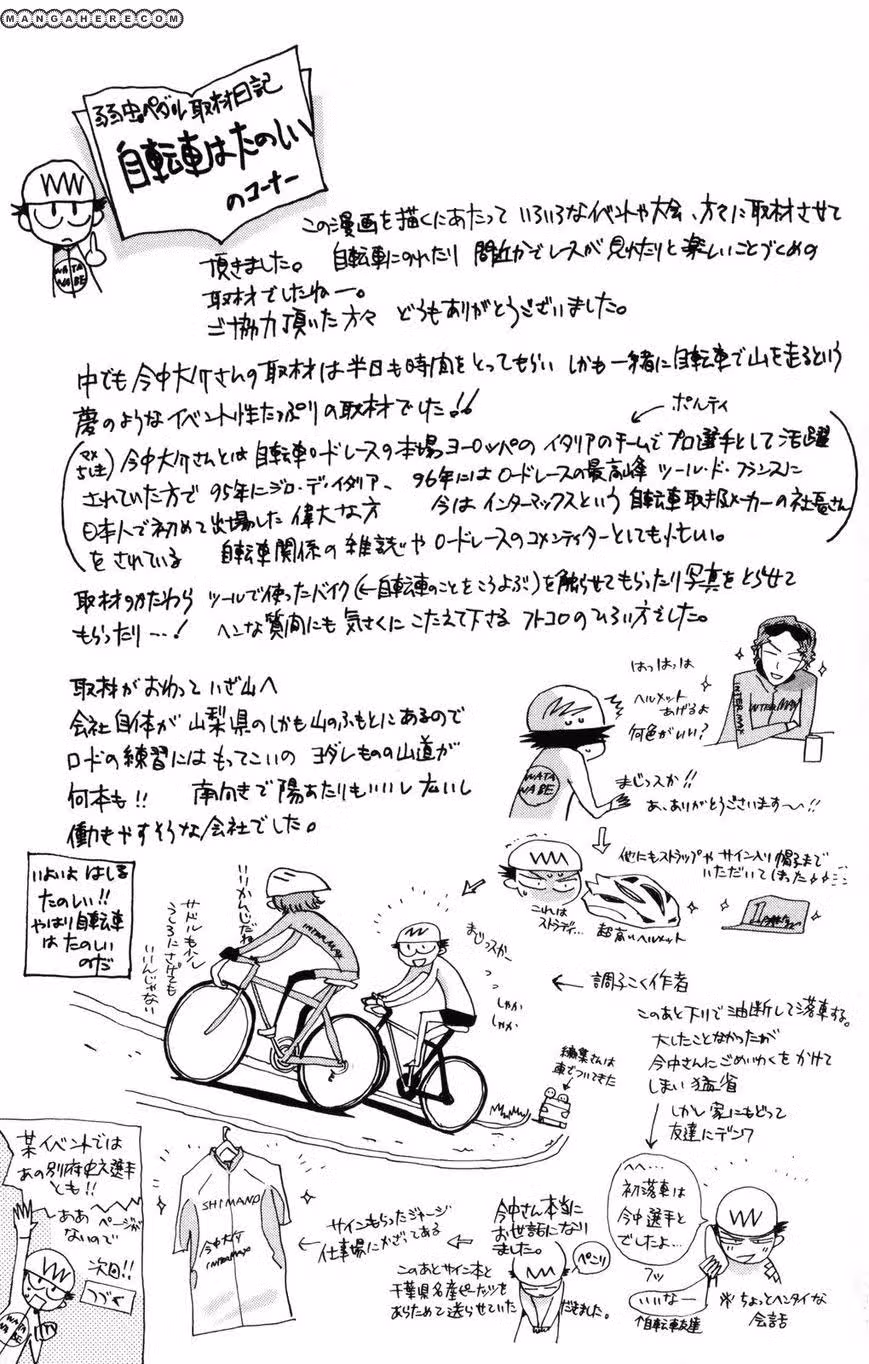 MANGAHERE.COM
弱虫ペダル取材日記
自転車はたのしい
のコーナー
WATA
NABE
この漫画を描くにあたって いろいろなイベントや大会、方々に取材させて
頂きました。 自転車にのれたり 間近かでレースが見れたりと楽しいことづくめの
取材でしたねー。
ご協力頂いた方々 どうもありがとうございました。
中でも今中大介さんの取材は半日も時間をとってもらい しかも一緒に自転車で山を走るという
夢のようなイベント性たっぷりの取材でした!!
ポルティ
今中大介さんとは自転車ロードレースの本場ヨーロッパのイタリアのチームでプロ選手として活躍
されていた方で 95年にジロ・デ・イタリア、 96年にはロードレースの最高峰 ツール・ド・フランスに
日本人で初めて出場した偉大な方 今はインターマックスという自転車取扱メーカーの社長さん
をされている 自転車関係の雑誌やロードレースのコメンテイターとしても
取材のかたわら ツールで使ったバイク(←自転車のことをこうよぶ)を触らせてもらったり写真をとらせて
もらったり…! ヘンな質問にも気さくにこたえて下さる フトコロのひろい方でした。
取材がおわっていざ山へ
会社自体が山梨県のしかも山のふもとにあるので
ロードの練習にはもってこいの ヨダレものの山道が
何本も!! 南向きで陽あたりもいいし広いし
働きやすそうな会社でした。
はっはっは
ヘルメット
あげるよ
何色がいい?
INTERMAX
INTERMAX
WATA
NABE
まじっスか!!
あ、ありがとうございます〜!!
他にもストラップやサイン入り帽子まで
いただいてしまった
これは
ストラディ…
超高いヘルメット
いよいよ はしる
たのしい!!
やはり自転車
は たのしい
のだ
いいかんじだね
サドルもう少し
うしろにさげても
いいんじゃない
INTERMAX
まじっスかー
しゃか
しゃか
← 調子こく作者
編集さんは
車でついてきた
このあと下りで油断して落車する。
大したことなかったが
今中さんにごめいわくをかけて
しまい 猛省
しかし家にもどって
友達にデンワ
へへ…
初落車は
今中選手と
でしたよ…
フッ
いいなー
↑自転車友達
※ちょっとヘンタイな
会話
今中さん本当に
お世話になり
ました。
ぺこり
このあとサイン本と
千葉県名産ピーナッツを
あらためて送らせていただきました。
← サインもらったジャージ
仕事場にかざってある
SHIMANO
今中大介
INTERMAX
某イベントでは
あの別府史之選手
とも!!
しああ ページが
ないので
次回!!
つづく
WATA
NABE